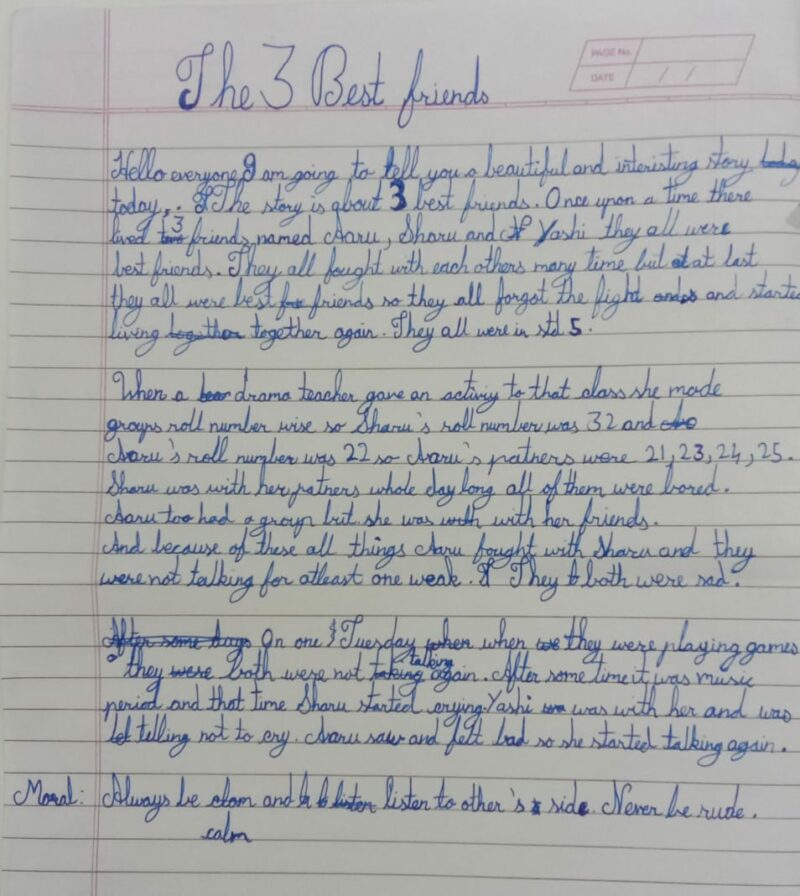 The 3 Best friends
PAGE No.
DATE / /
Hello everyone, I am going to tell you a beautiful and interisting story
today. The story is about 3 best friends. Once upon a time there
lived 3 friends named Aaru, Sharu and Yashi they all were
best friends. They all fought with each others many time but at last
they all were best friends so they all forgot the fight and started
living together again. They all were in std 5.
When a drama teacher gave an activiy to that class she made
groups roll number wise so Sharu's roll number was 32 and
Aaru's roll number was 22 so Aaru's patners were 21, 23, 24, 25.
Sharu was with her patners whole day long all of them were bored.
Aaru too had a group but she was with her friends.
And because of these all things Aaru fought with Sharu and they
were not talking for atleast one weak. They both were sad.
On one Tuesday when they were playing games
they both were not talking again. After some time it was music
period and that time Sharu started crying. Yashi was with her and was
telling not to cry. Aaru saw and felt bad so she started talking again.
Moral: Always be calm and listen to other's side. Never be rude.